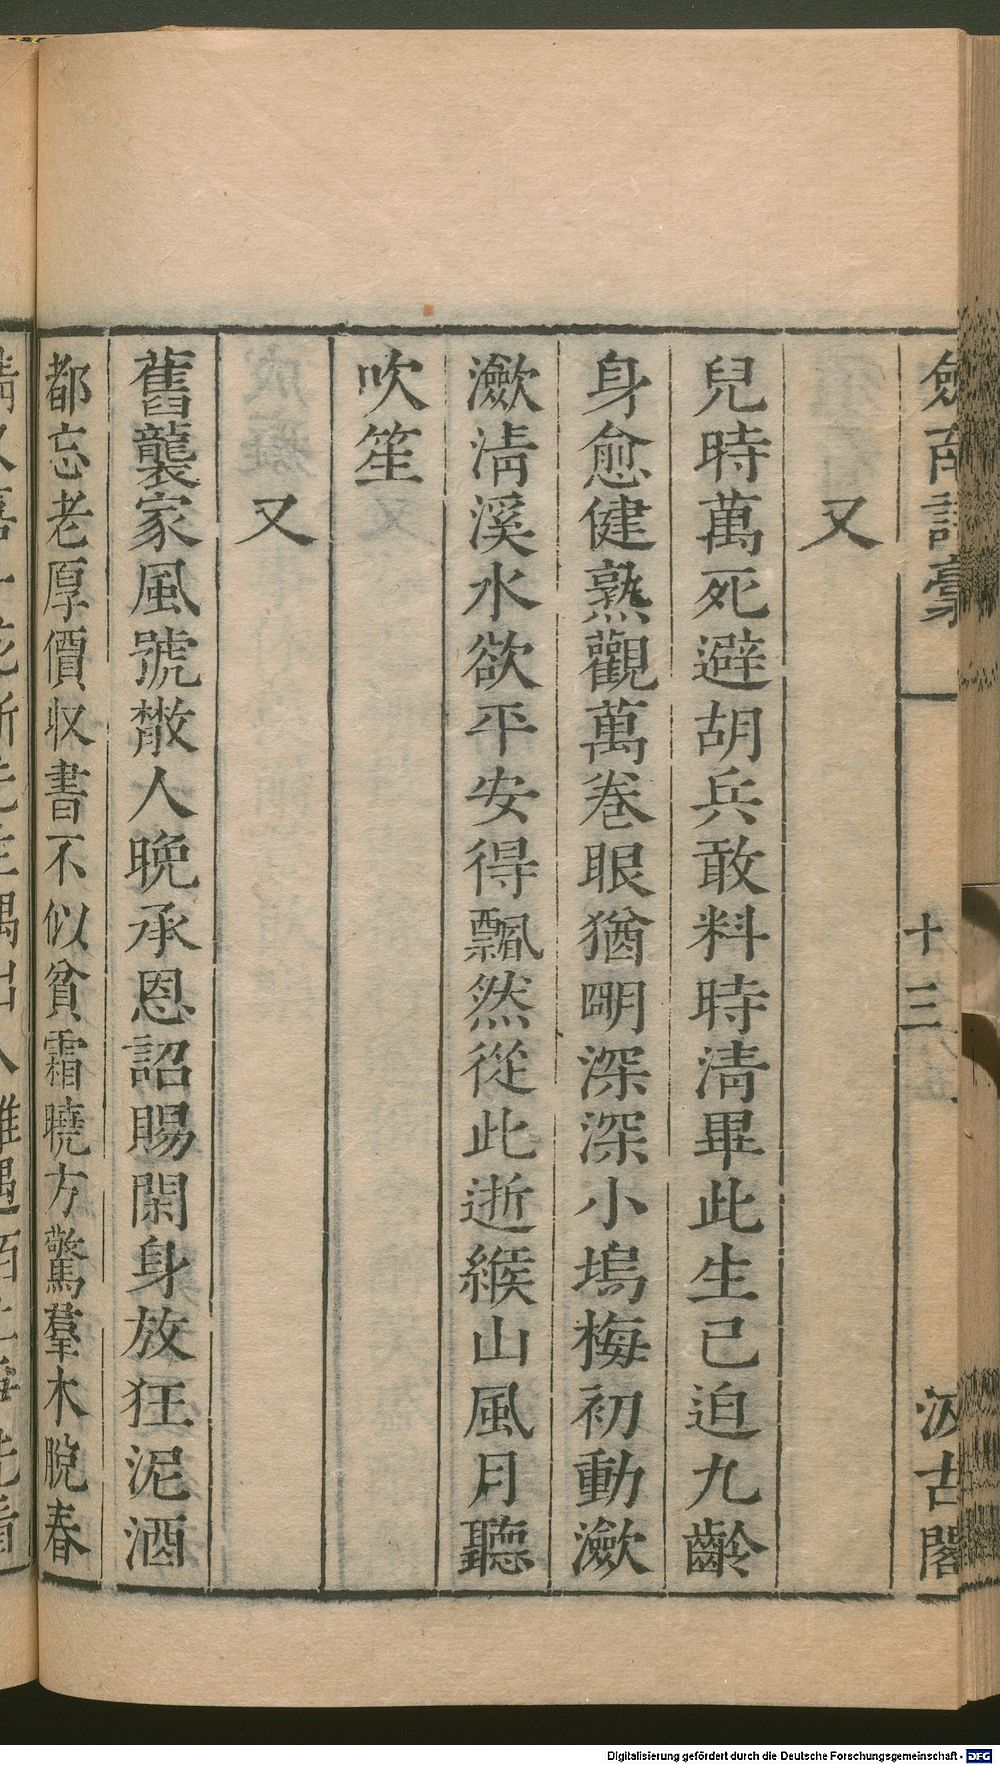 劍南詩稾 十三 汲古閣
又
兒時萬死避胡兵敢料時清畢此生已迫九齡
身愈健熟觀萬卷眼猶明深深小塢梅初動瀲
瀲清溪水欲平安得飄然從此逝緱山風月聽
吹笙
又
舊襲家風號散人晚承恩詔賜閑身放狂泥酒
都忘老厚價収書不似貧霜曉方驚羣木脫春
Digitalisierung gefördert durch die Deutsche Forschungsgemeinschaft - DFG